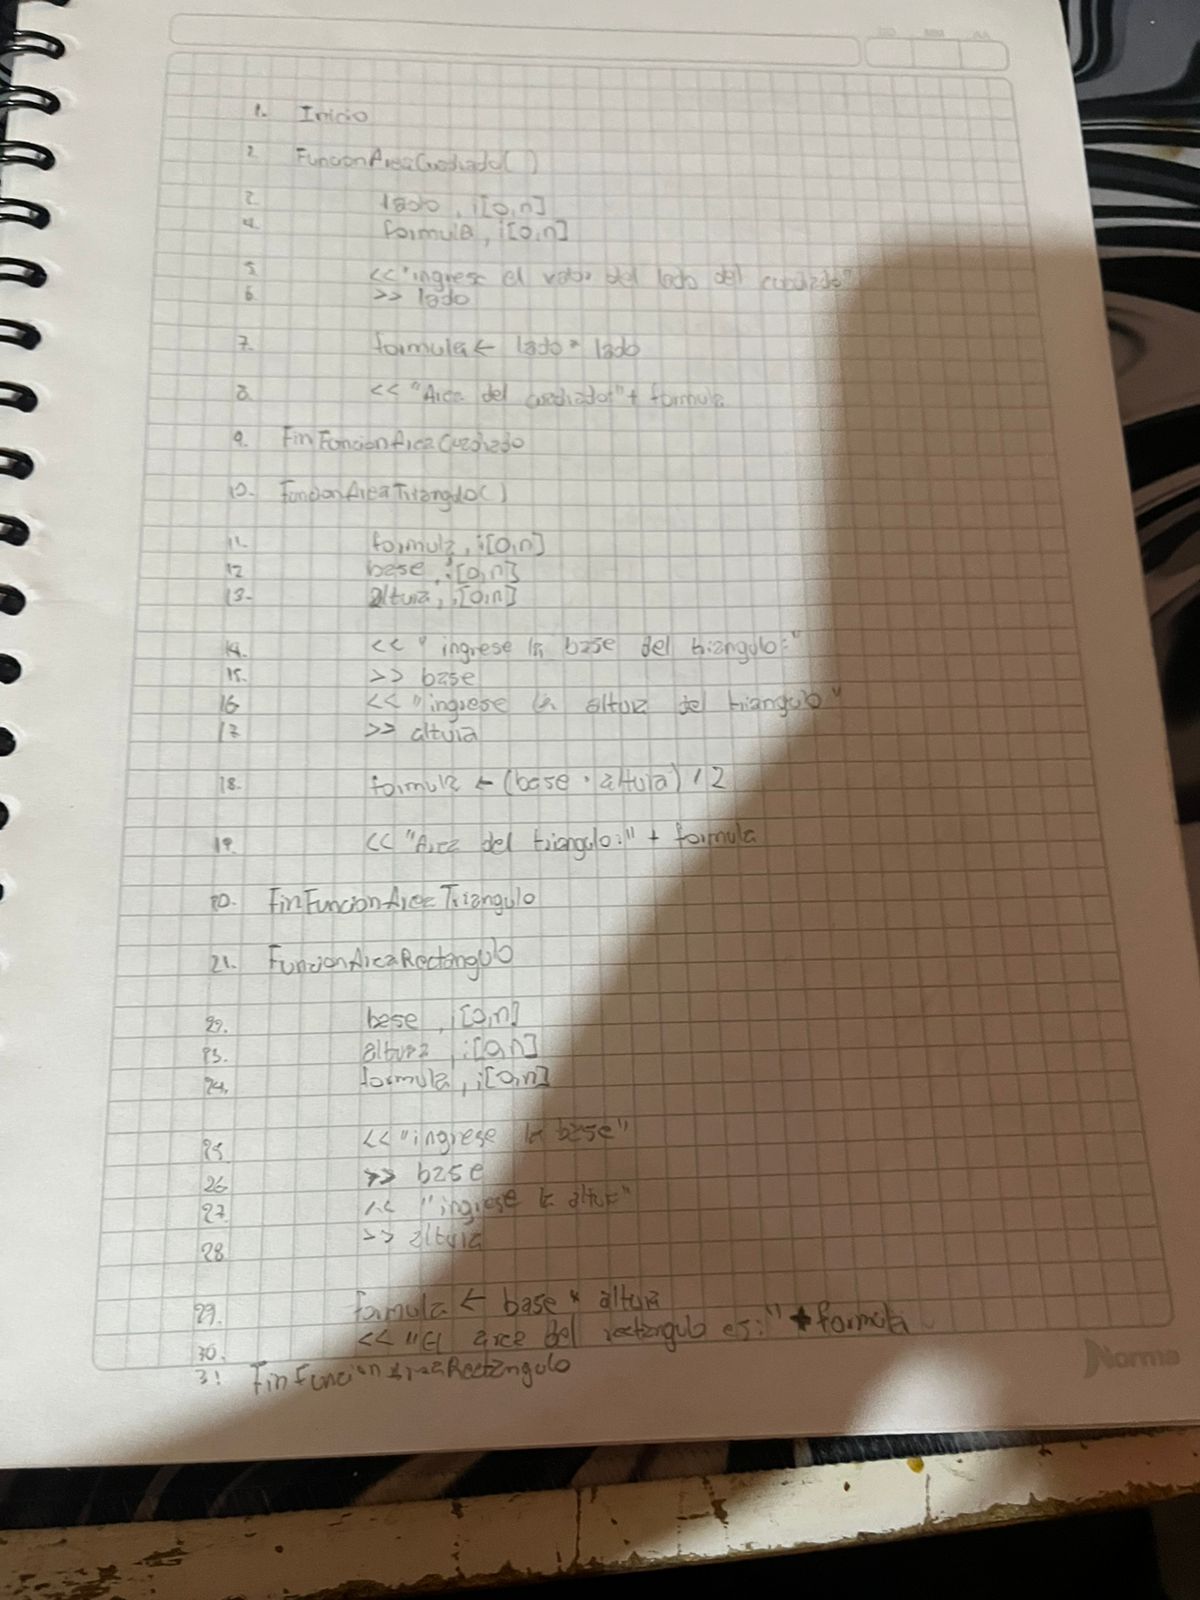 DD MM AA
1. Inicio
2 FuncionAreaCuadrado( )
2 lado, i[0,n]
4. formula, i[0,n]
5 <<"ingrese el valor del lado del cuadrado"
6 >> lado
7. formula ← lado * lado
8. << "Area del cuadrado:" + formula
9. FinFuncionAreaCuadrado
10. FuncionAreaTriangulo( )
11. formula, i[0,n]
12 base, i[0,n]
13. altura, i[0,n]
14. << " ingrese la base del triangulo:"
15. >> base
16 << "ingrese la altura del triangulo"
17 >> altura
18. formula ← (base * altura) / 2
19. << "Area del triangulo:" + formula
20. FinFuncionAreaTriangulo
21. FuncionAreaRectangulo
22. base, i[0,n]
23. altura, i[0,n]
24. formula, i[0,n]
25 << "ingrese la base"
26 >> base
27 << "ingrese la altura"
28 >> altura
29. formula ← base * altura
30. << "El area del rectangulo es:" + formula
31 FinFuncionAreaRectangulo
Norma